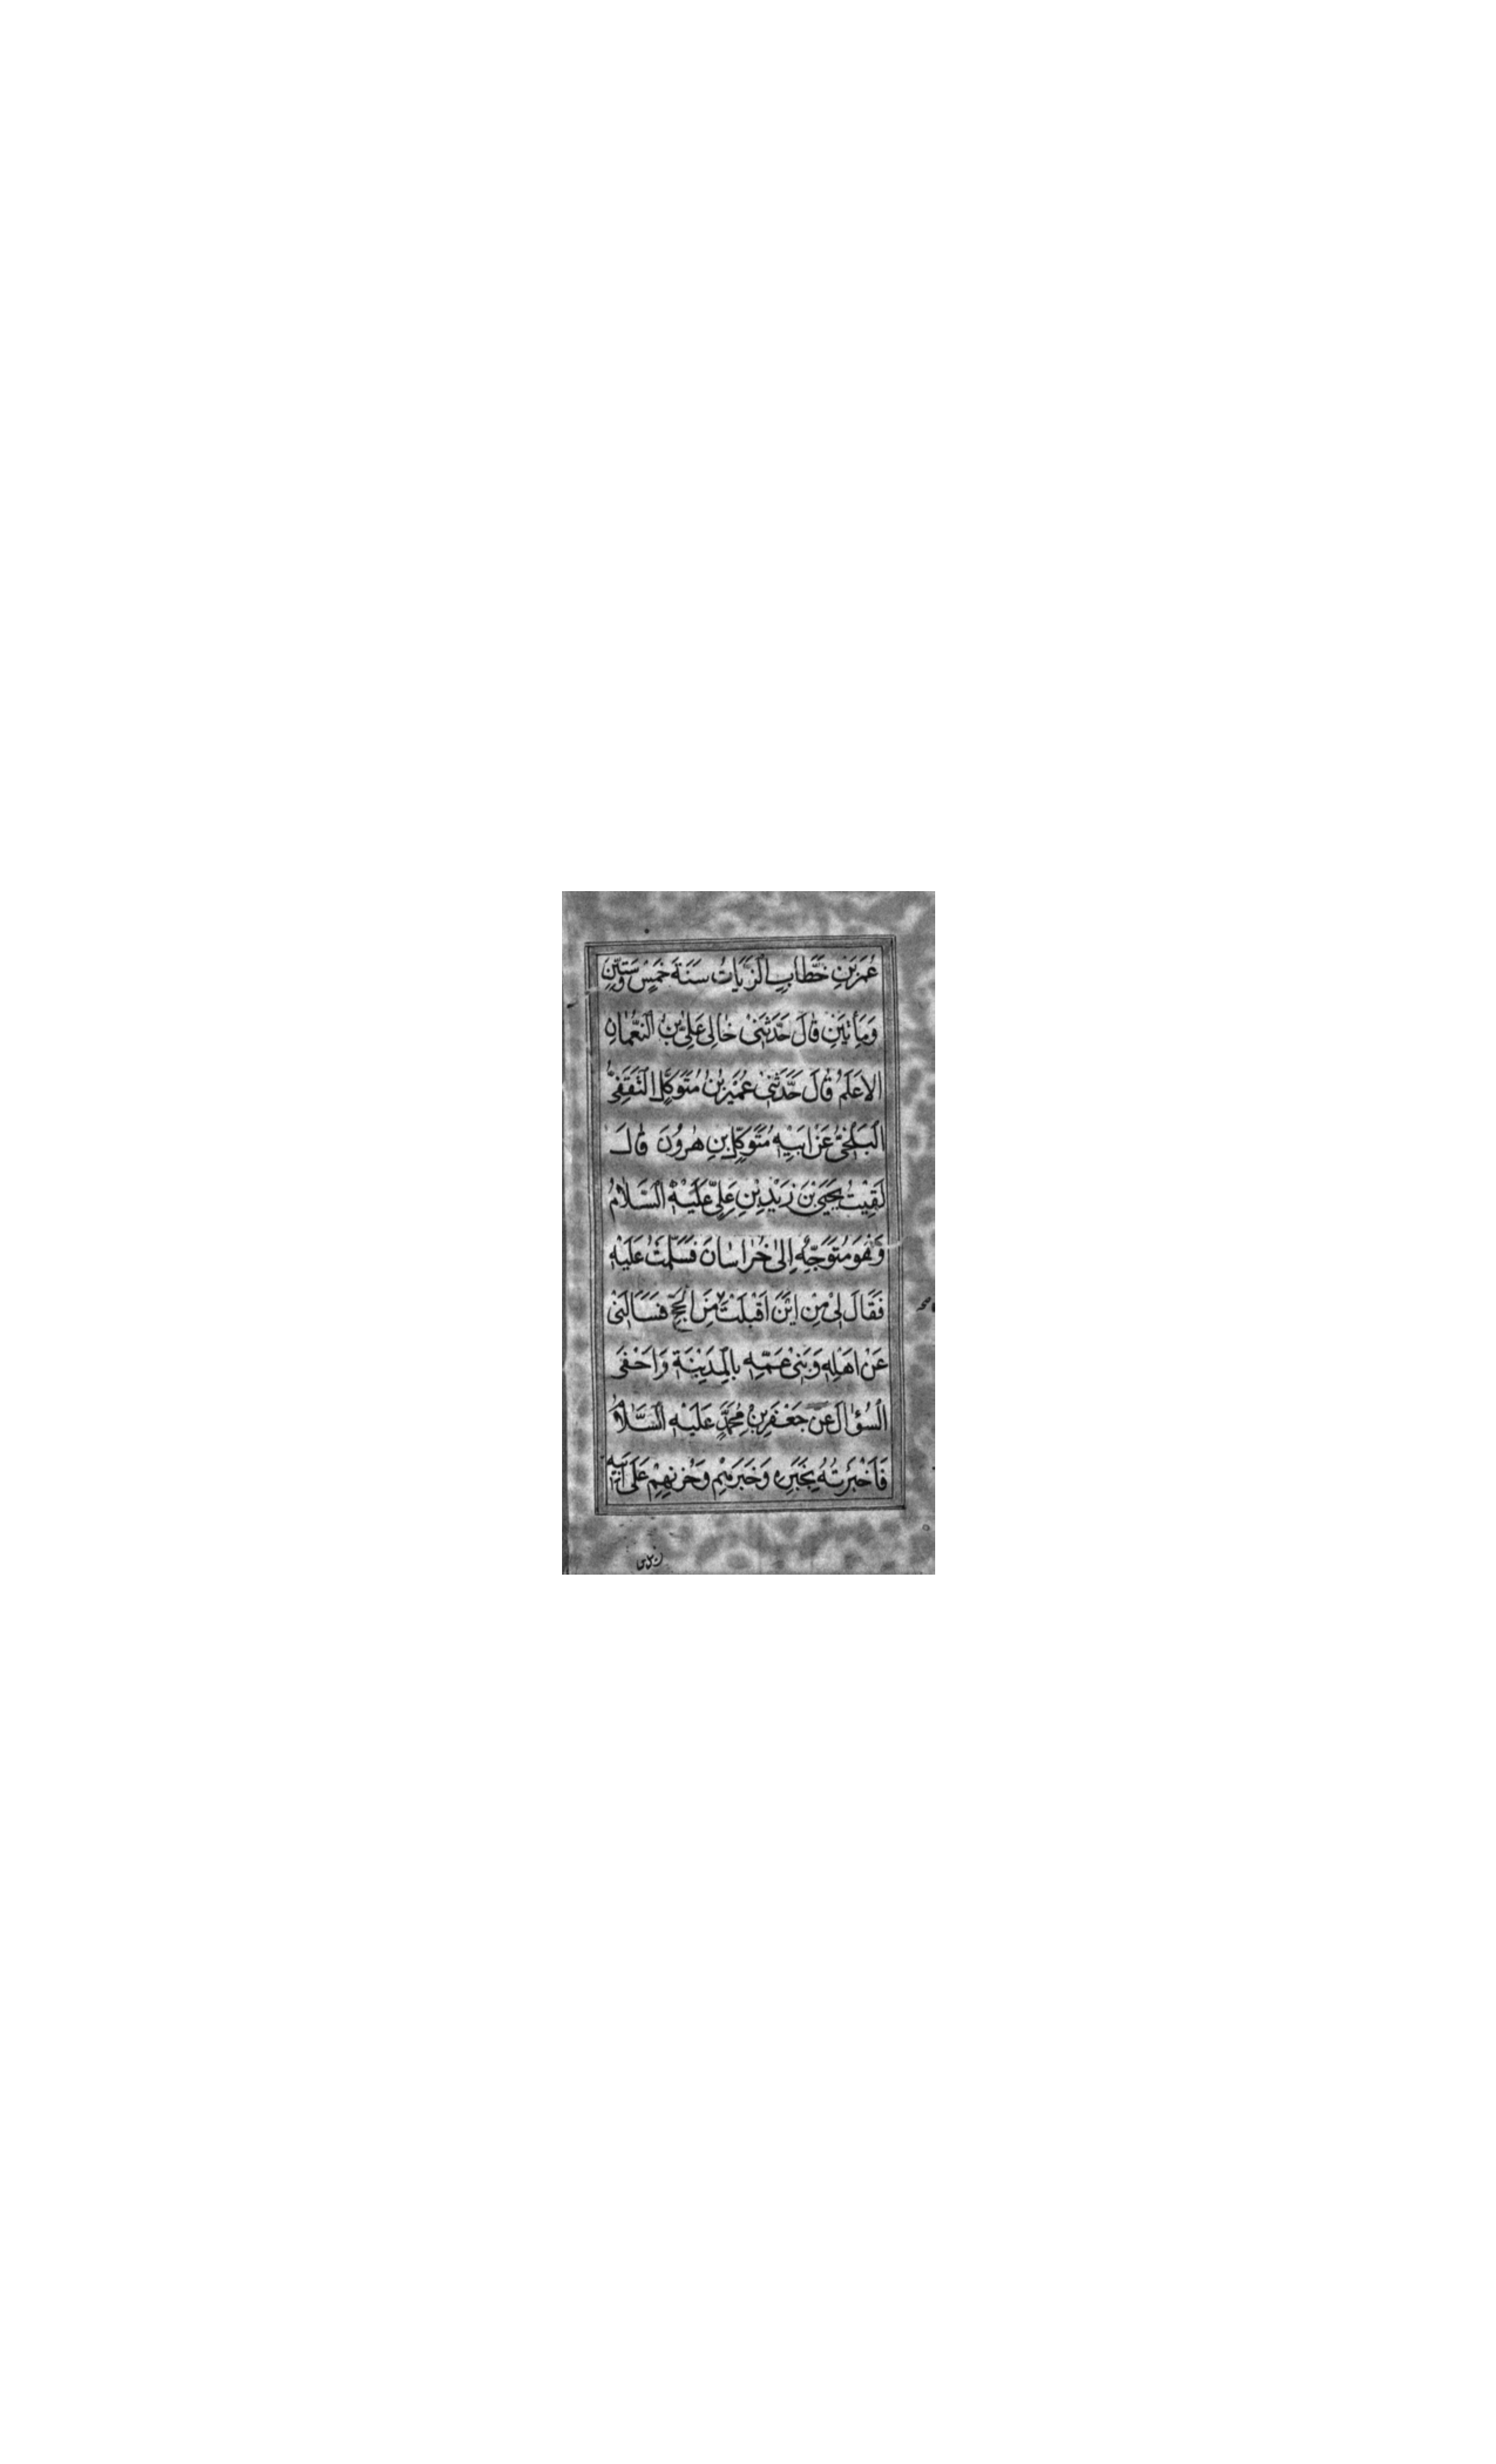 عُمَرَ بْنِ خَطَّابِ الزَّيَّاتُ سَنَةَ خَمْسٍ وَسِتِّينَ
وَمِأَتَيْنِ قَالَ حَدَّثَنِي خَالِي عَلِيُّ بْنُ النُّعْمَانِ
الاَعْلَمُ قَالَ حَدَّثَنِي عُمَيْرُ بْنُ مُتَوَكِّلٍ الثَّقَفِيُّ
الْبَلْخِيُّ عَنْ اَبِيهِ مُتَوَكِّلِ بْنِ هٰرُونَ قَالَ
لَقِيْتُ يَحْيَى بْنَ زَيْدِ بْنِ عَلِيٍّ عَلَيْهِ السَّلَامُ
وَهُوَ مُتَوَجِّهٌ اِلَى خُرَاسَانَ فَسَلَّمْتُ عَلَيْهِ
فَقَالَ لِيْ مِنْ اَيْنَ اَقْبَلْتَ مِنَ الْحَجِّ فَسَاَلَنِيْ
عَنْ اَهْلِهِ وَبَنِيْ عَمِّهِ بِالْمَدِيْنَةِ وَاَحْفَى
السُّؤَالَ عَنْ جَعْفَرِ بْنِ مُحَمَّدٍ عَلَيْهِ السَّلَامُ
فَاَخْبَرْتُهُ بِخَبَرِهِ وَخَبَرِهِمْ وَحُزْنِهِمْ عَلَى اَبِيْهِ